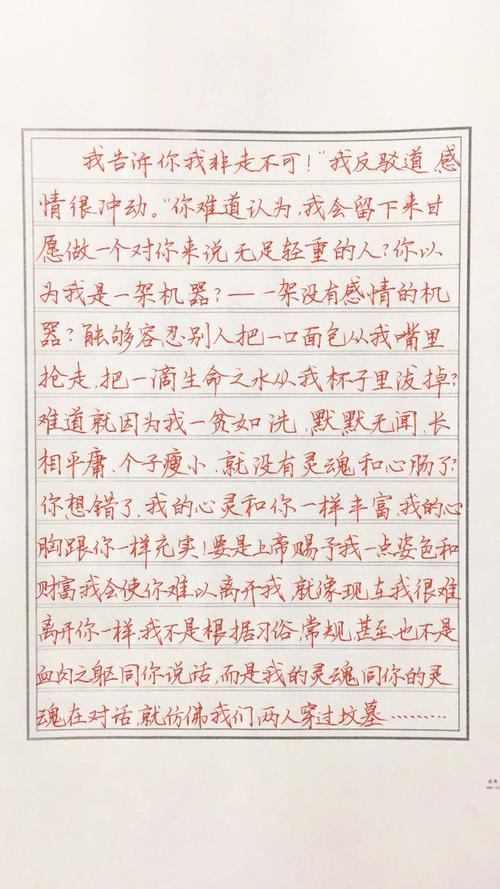 我告诉你我非走不可！"我反驳道,感
情很冲动。"你难道认为,我会留下来甘
愿做一个对你来说无足轻重的人?你以
为我是一架机器?——一架没有感情的机
器?能够容忍别人把一口面包从我嘴里
抢走,把一滴生命之水从我杯子里泼掉?
难道就因为我一贫如洗,默默无闻,长
相平庸,个子瘦小,就没有灵魂和心肠了?
你想错了,我的心灵和你一样丰富,我的心
胸跟你一样充实!要是上帝赐予我一点姿色和
财富我会使你难以离开我,就像现在我很难
离开你一样,我不是根据习俗,常规,甚至也不是
血肉之躯同你说话,而是我的灵魂同你的灵
魂在对话,就仿佛我们两人穿过坟墓………